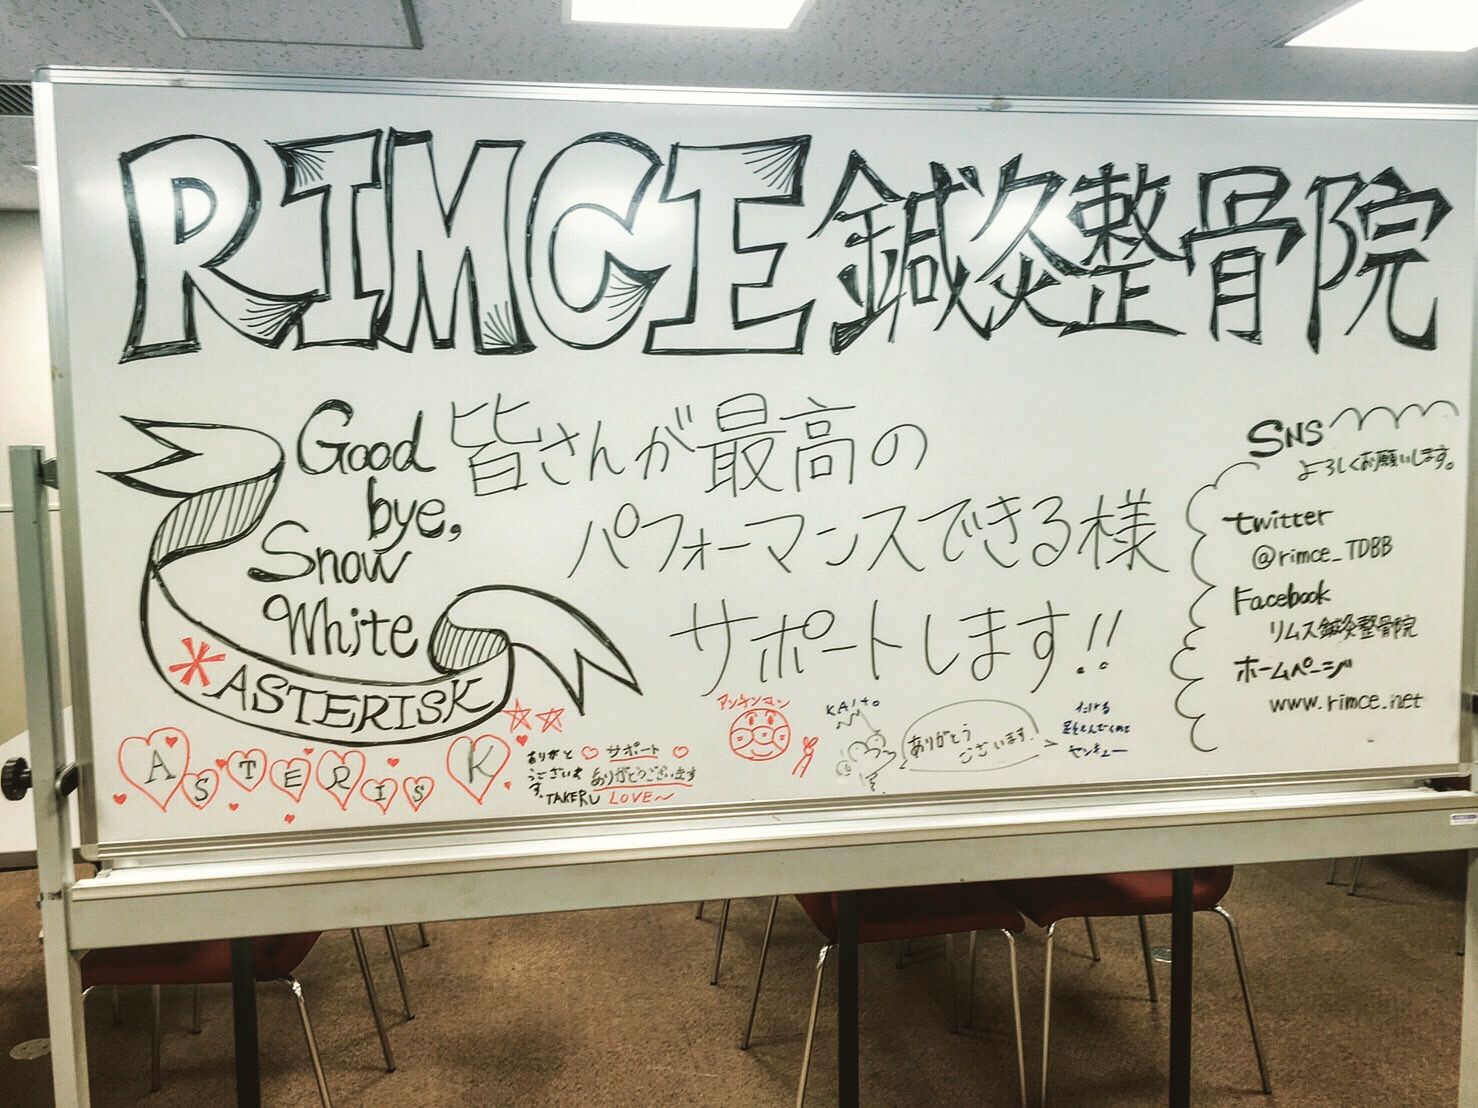 RIMCE鍼灸整骨院
Good
bye,
Snow
White
*ASTERISK
皆さんが最高の
パフォーマンスできる様
サポートします!!
SNS
よろしくお願いします。
twitter
@rimce_TDBB
Facebook
リムス鍼灸整骨院
ホームページ
www.rimce.net
ASTERISK
ありがと
うございま
す。TAKERU
サポート
ありがとうございます
LOVE～
アンチンマン
KAITO
ありがとう
ございます!
たける
ヤンキュー